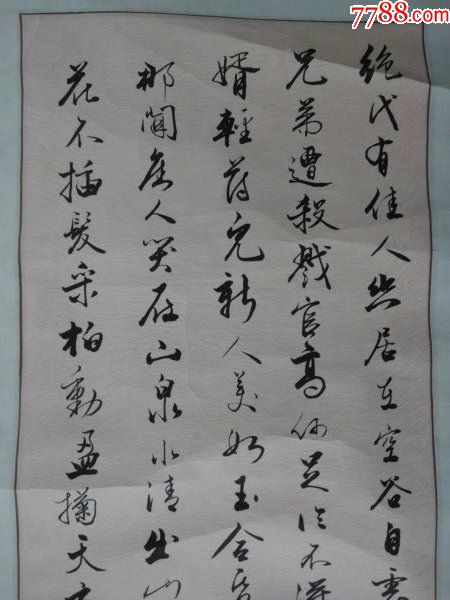 7788.com
絕代有佳人幽居在空谷自雲
兄弟遭殺戮官高何足論不得
婿輕薄兒新人美如玉合昏
那聞舊人哭在山泉水清出山
花不插髮采柏動盈掬天